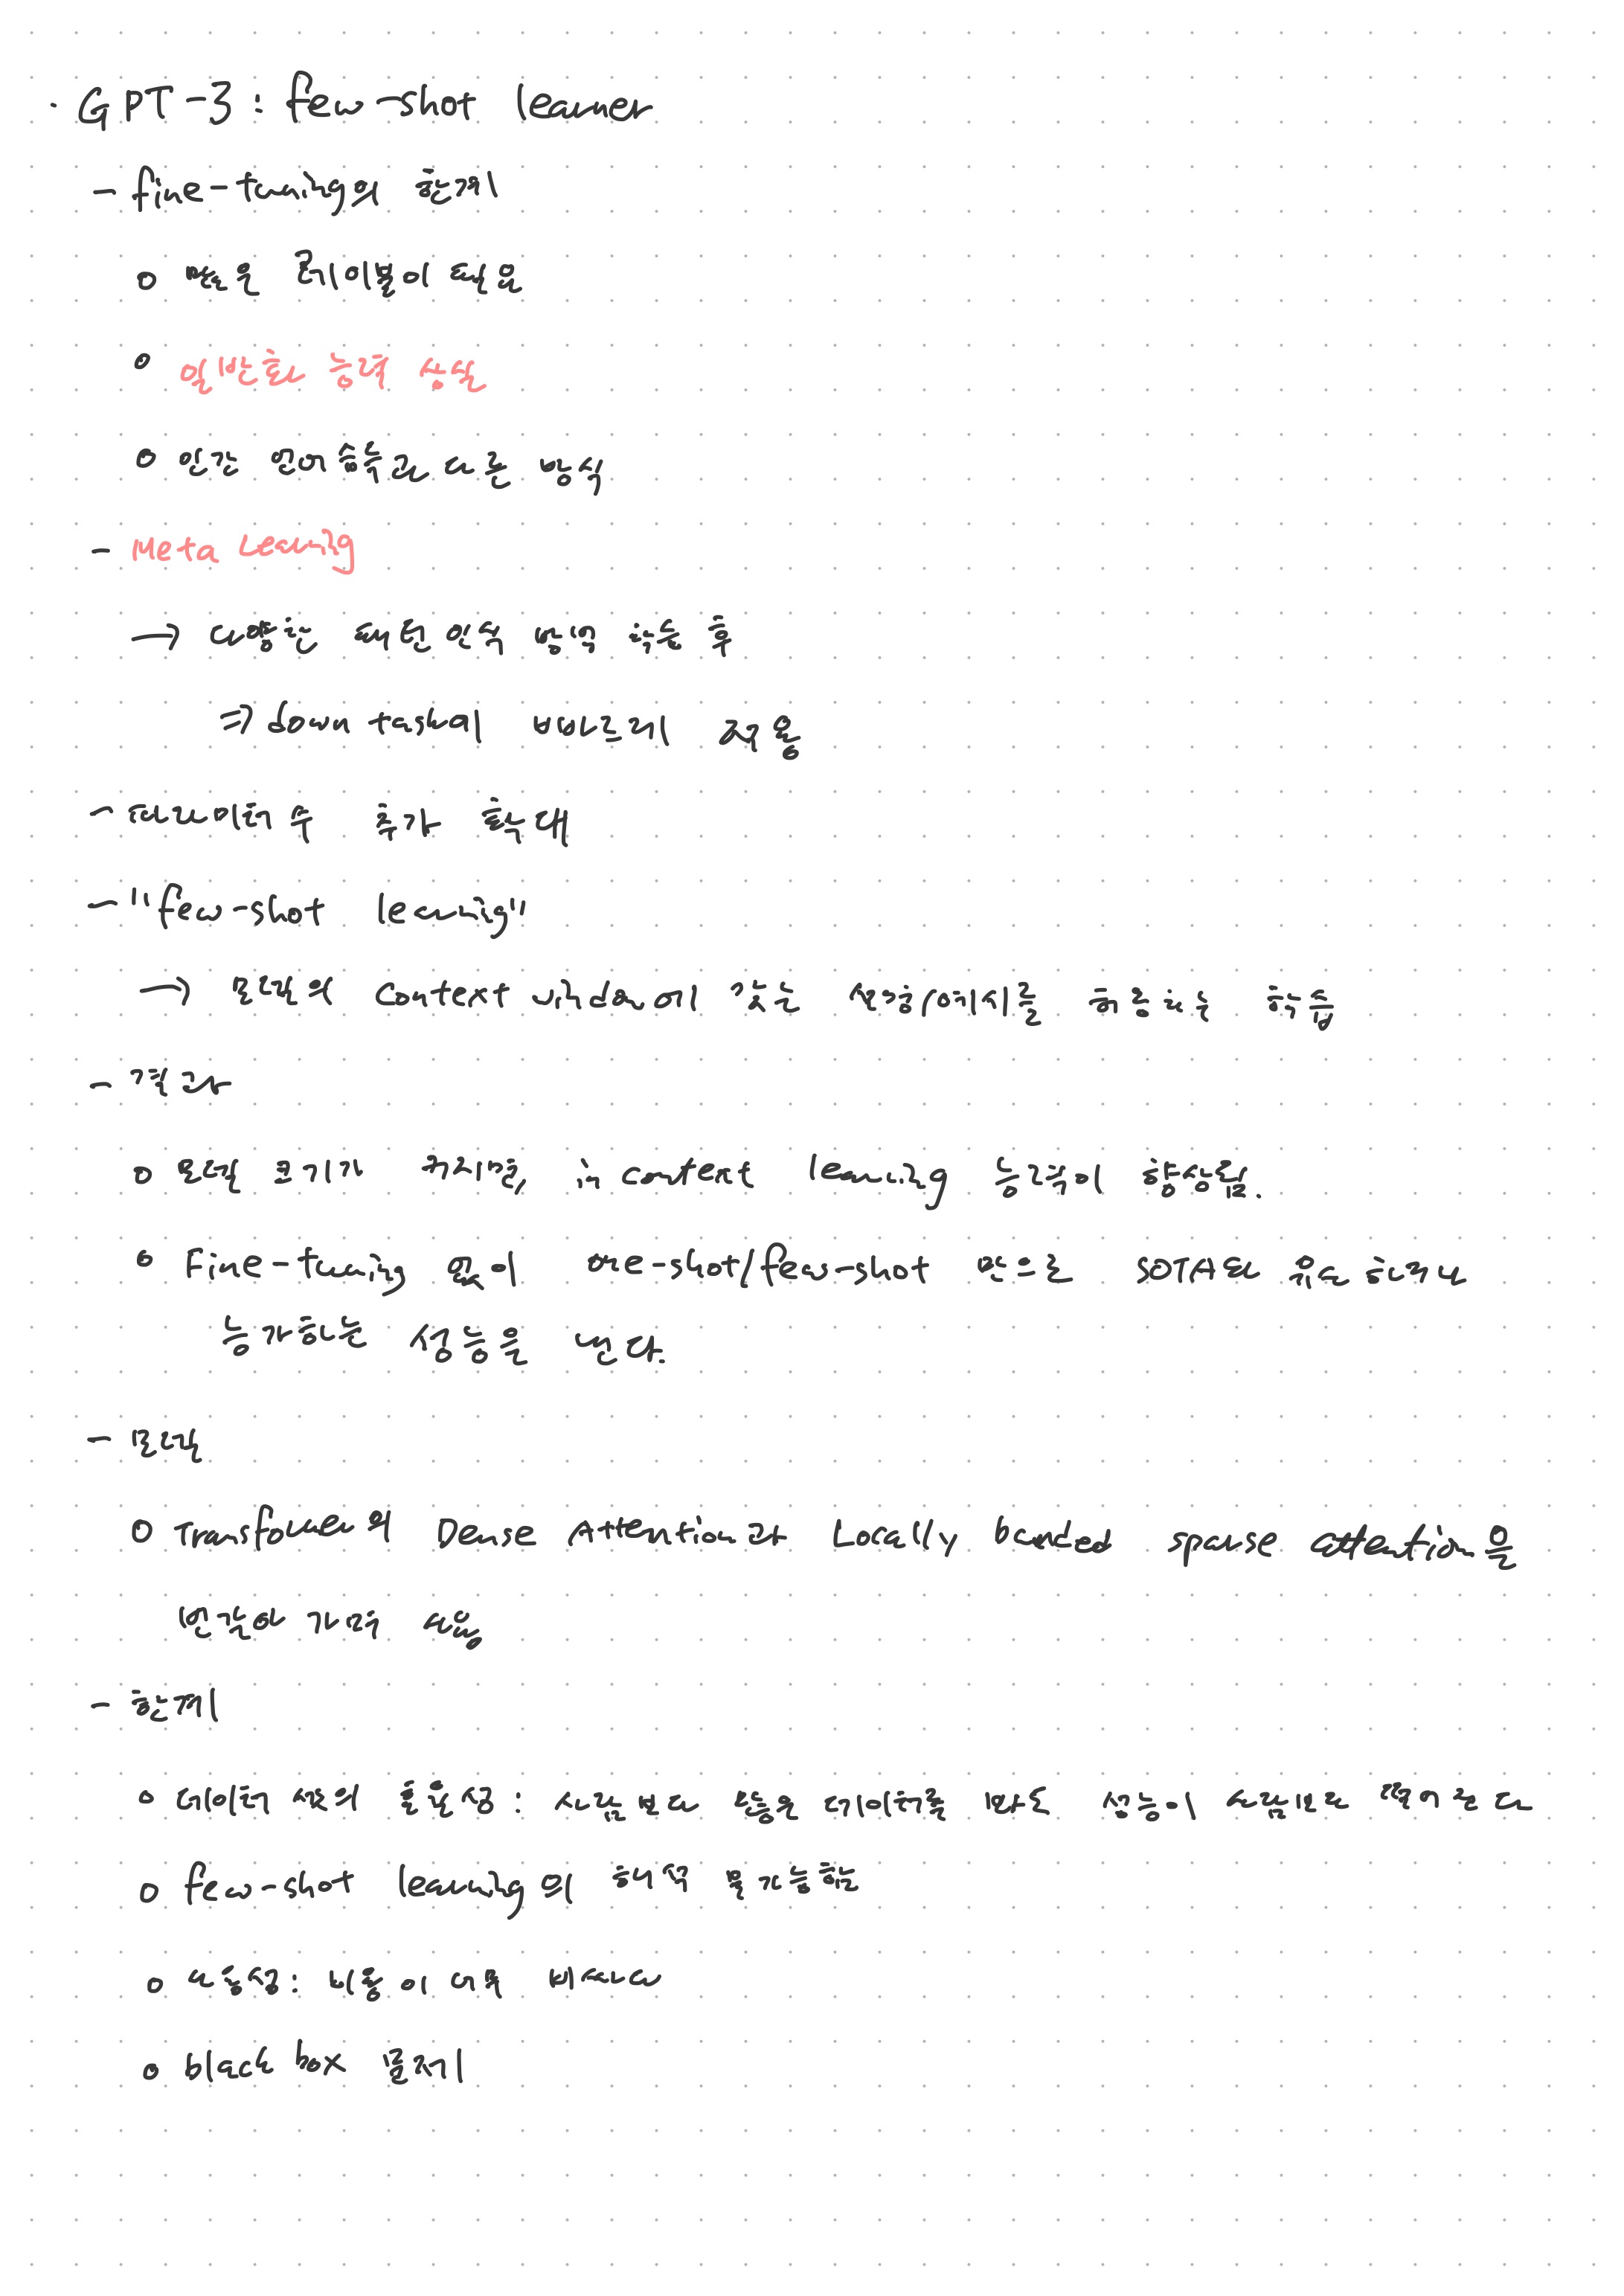 · GPT-3 : few-shot learner
- fine-tuning의 한계
o 많은 레이블이 필요
o 일반화 능력 상실
o 인간 언어습득과 다른 방식
- Meta Learning
→ 다양한 패턴 인식 방식 학습 후
⇒ down task에 빠르게 적용
- 파라미터 수 추가 확대
- "few-shot learning"
→ 모델의 context window에 있는 설명/예시를 허용하는 학습
- 결과
o 모델 크기가 커지면, in context learning 능력이 향상됨.
o Fine-tuning 없이 one-shot/few-shot 만으로 SOTA와 유사하거나
능가하는 성능을 낸다.
- 모델
o Transformer의 Dense Attention과 Locally banded sparse attention을
번갈아 가며 사용
- 한계
o 데이터 셋의 효율성 : 사람보다 많은 데이터를 봐도 성능이 사람보다 떨어진다
o few-shot learning의 해석 불가능함
o 사용성 : 비용이 너무 비싸다
o black box 문제